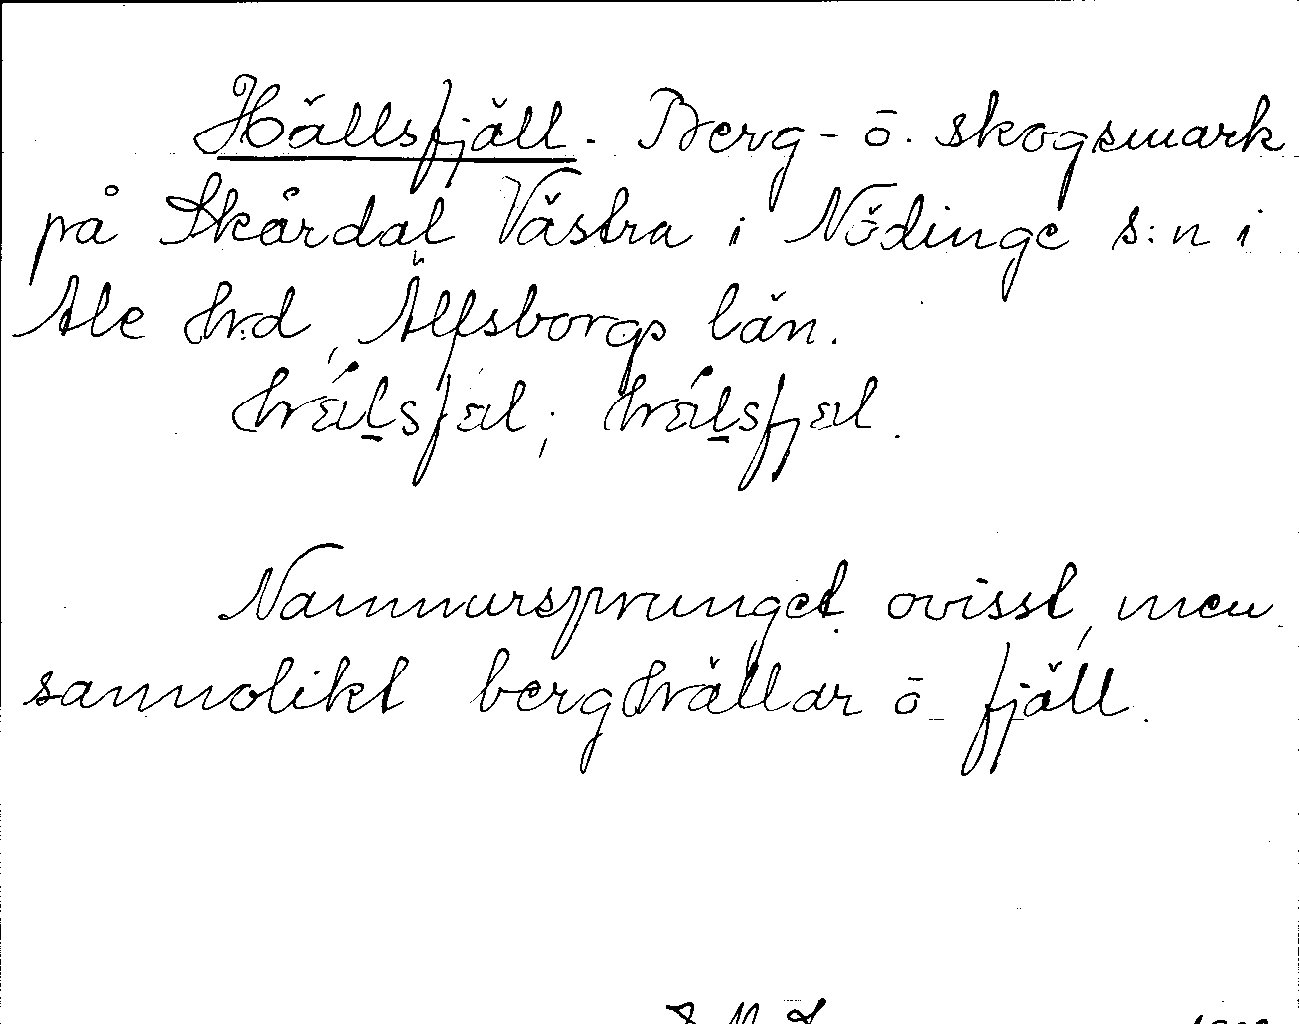 Hällsfjäll. Berg- ō. skogsmark
på Skårdal Västra i Nödinge s:n i
Ale hrd, Älfsborgs län.
hɛ́lsfɛl; hɛ́lsfjɛl.
Namnursprunget ovisst, men
sannolikt berghällar ō fjäll.